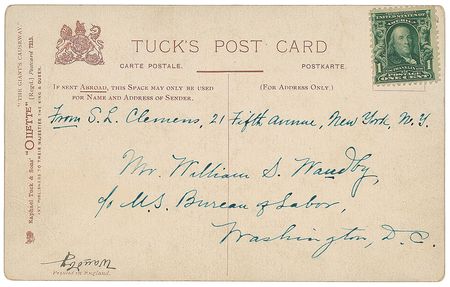 TUCK'S POST CARD
CARTE POSTALE.
POSTKARTE.
IF SENT ABROAD, THIS SPACE MAY ONLY BE USED
FOR NAME AND ADDRESS OF SENDER.
(FOR ADDRESS ONLY.)
UNITED STATES OF AMERICA
1
ONE CENT
From S. L. Clemens, 21 Fifth Avenue, New York, N.Y.
Mr. William S. Waudby,
c/o U.S. Bureau of Labor,
Washington, D.C.
"THE GIANT'S CAUSEWAY"
"OILETTE" [Regd.] Postcard
Raphael Tuck & Sons'
ART PUBLISHERS TO THEIR MAJESTIES THE KING & QUEEN.
Waudby
Printed in England.